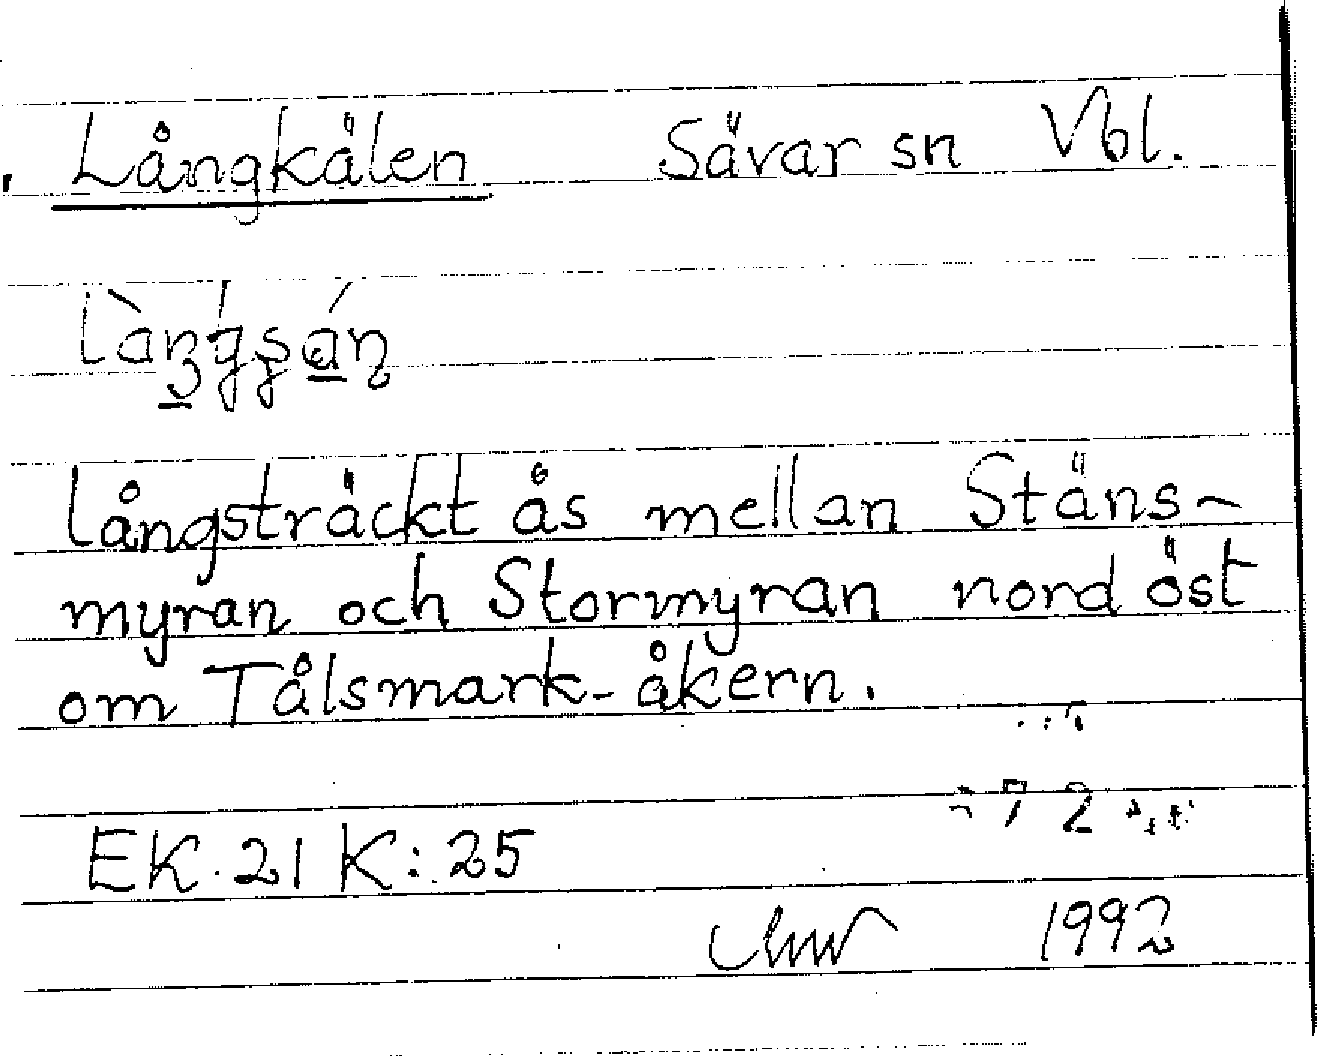 Långkälen Sävar sn Vbl.
långsträckt ås mellan Stäns-
myran och Stormyran nord öst
om Tålsmark-åkern.
EK. 21 K: 25
1992